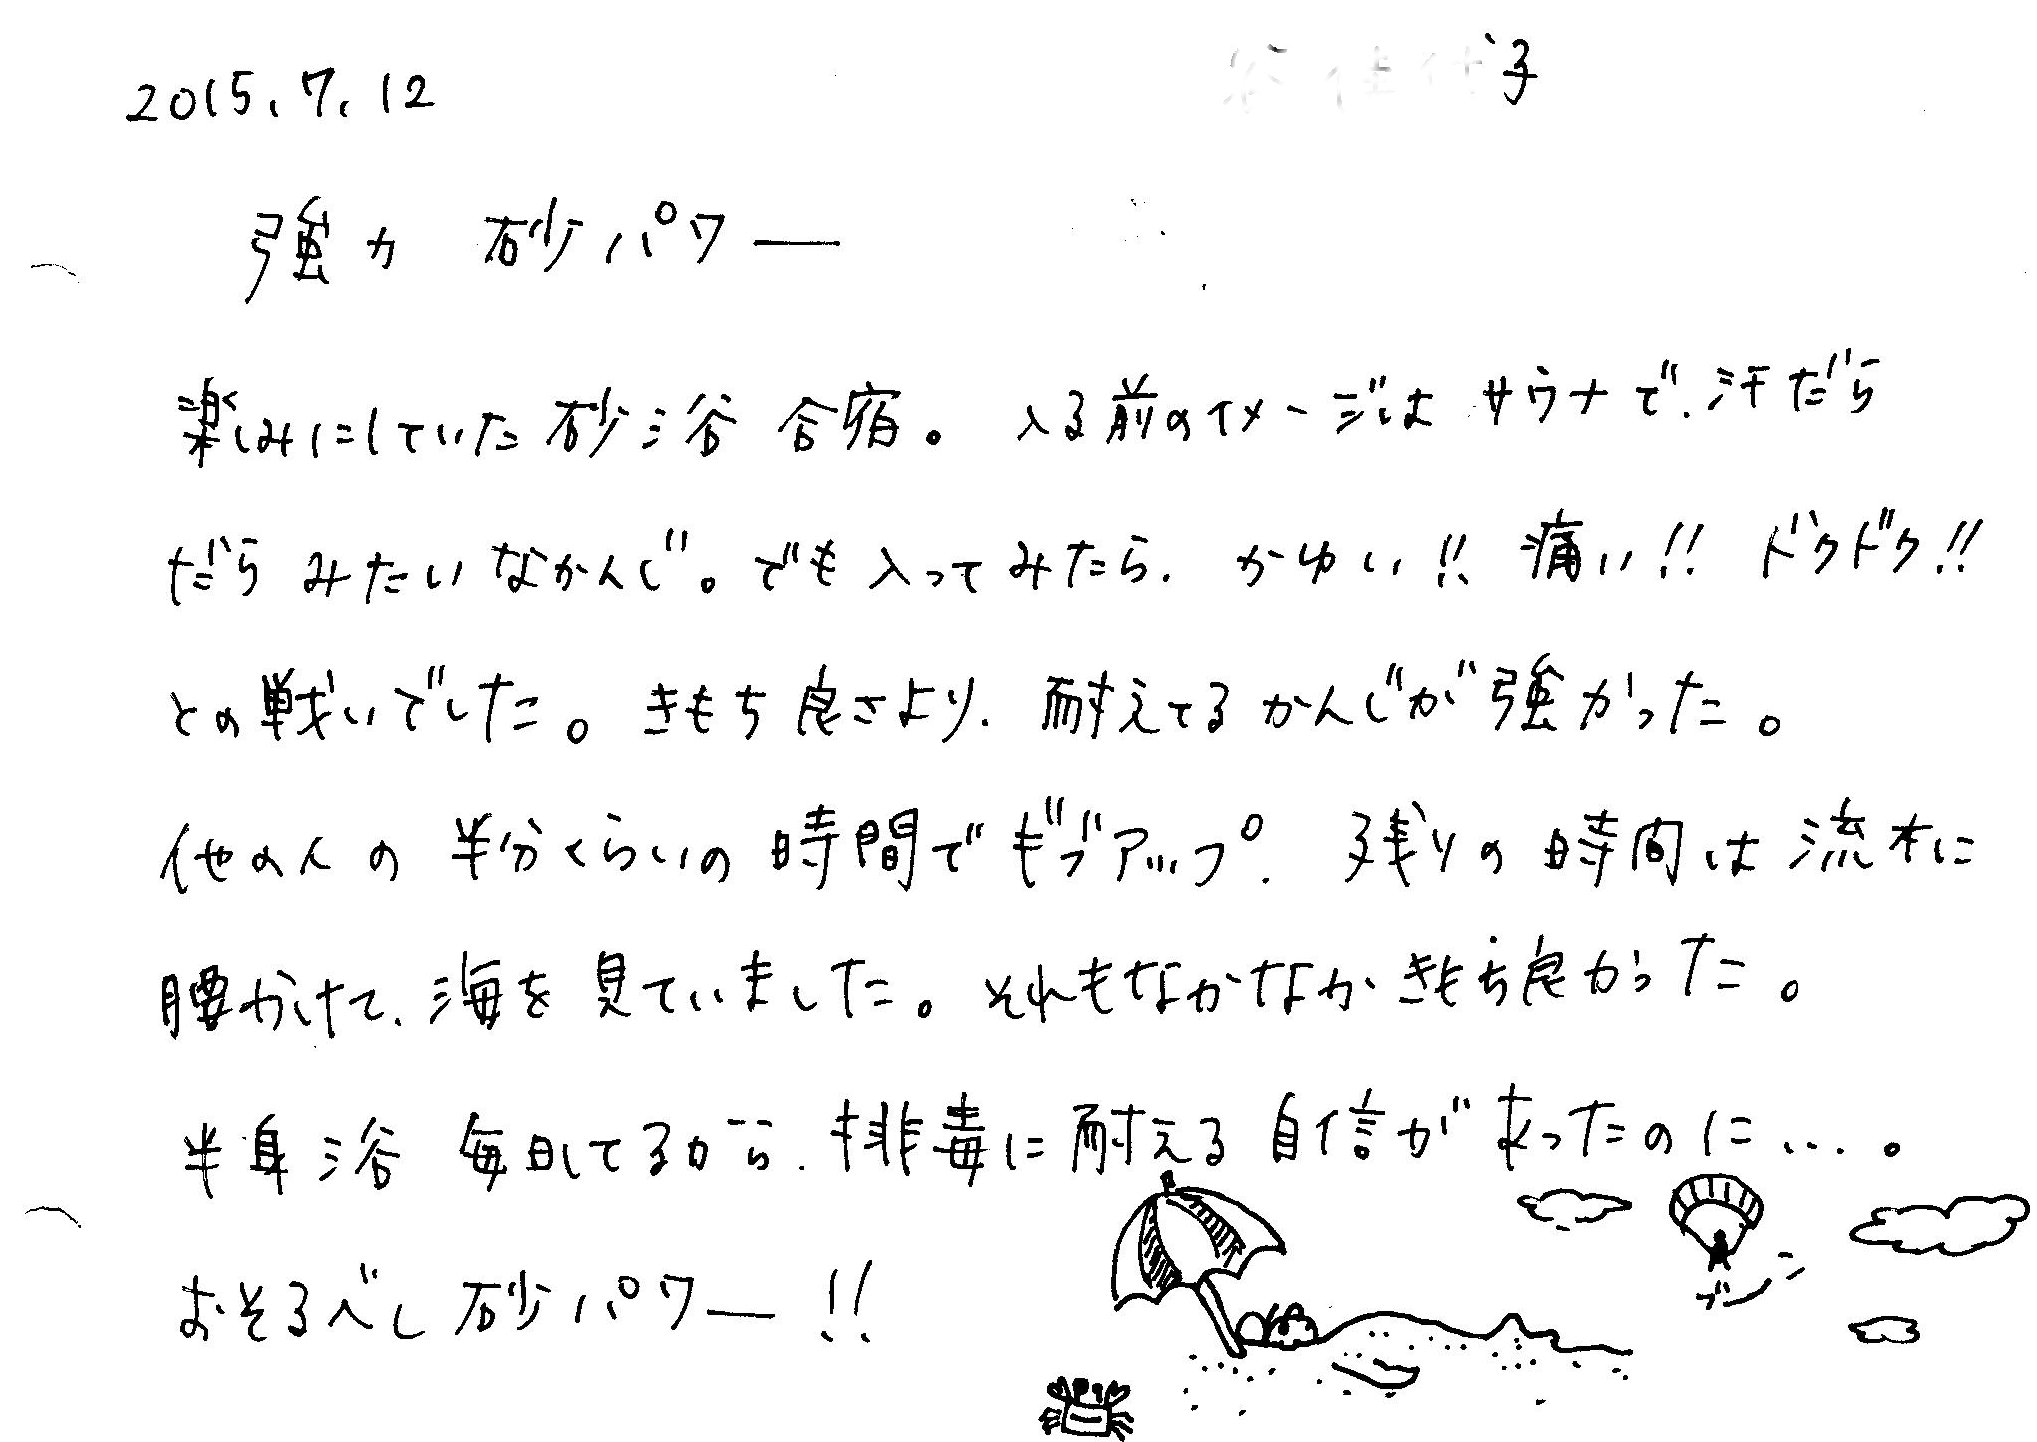 2015.7.12
強力 砂パワー
楽しみにしていた砂浴合宿。入る前のイメージはサウナで、汗だら
だらみたいなかんじ。でも入ってみたら、かゆい!! 痛い!! ドクドク!!
との戦いでした。きもち良さより、耐えてるかんじが強かった。
他の人の半分くらいの時間でギブアップ。残りの時間は流木に
腰かけて、海を見ていました。それもなかなかきもち良かった。
半身浴 毎日してるから、排毒に耐える自信があったのに…。
おそるべし砂パワー!!